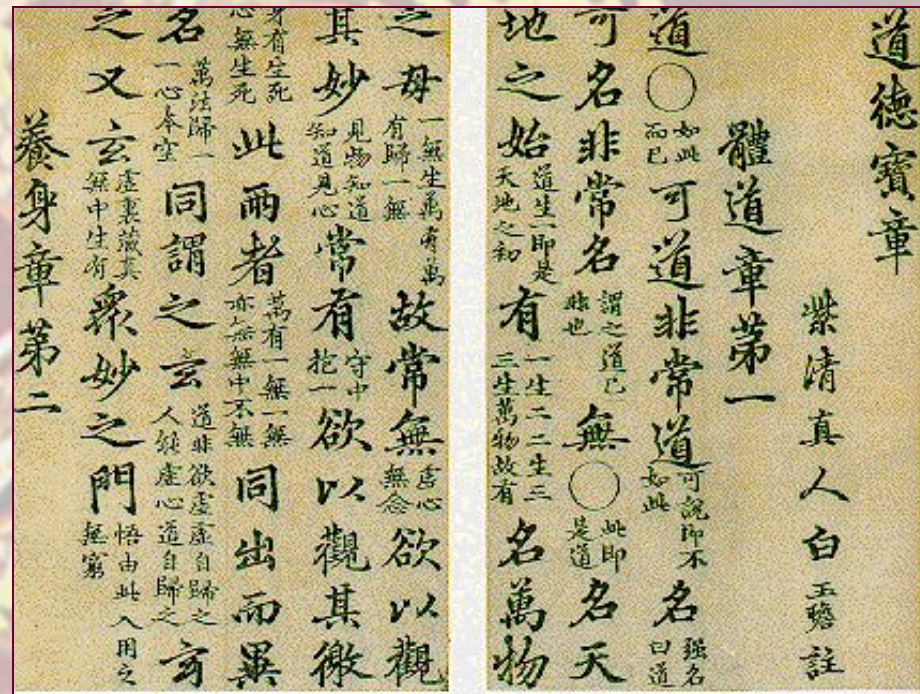 道德寶章
紫清真人白玉蟾註
體道章第一
道○如此而已可道非常道可說即不如此名强名曰道
可名非常名謂之道已非也無○此即是道名天
地之始道生一即是天地之初有一生二二生三三生萬物故有名萬物
之母一無生萬有萬有歸一無故常無虛心無念欲以觀
其妙見物知道知道見心常有守中抱一欲以觀其徼
身有生死心無生死此兩者萬有一無一無亦無無中不無同出而異
名萬法歸一一心本空同謂之玄道非欲虛虛自歸之人能虛心道自歸之玄
之又玄虛裏藏真無中生有衆妙之門悟由此入用之無窮
養身章第二